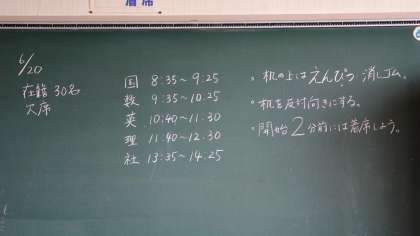 着席
6/20
在籍 30名
欠席
国 8:35〜9:25
数 9:35〜10:25
英 10:40〜11:30
理 11:40〜12:30
社 13:35〜14:25
・机の上はえんぴつ 消しゴム。
・机を反対向きにする。
・開始2分前には着席しよう。